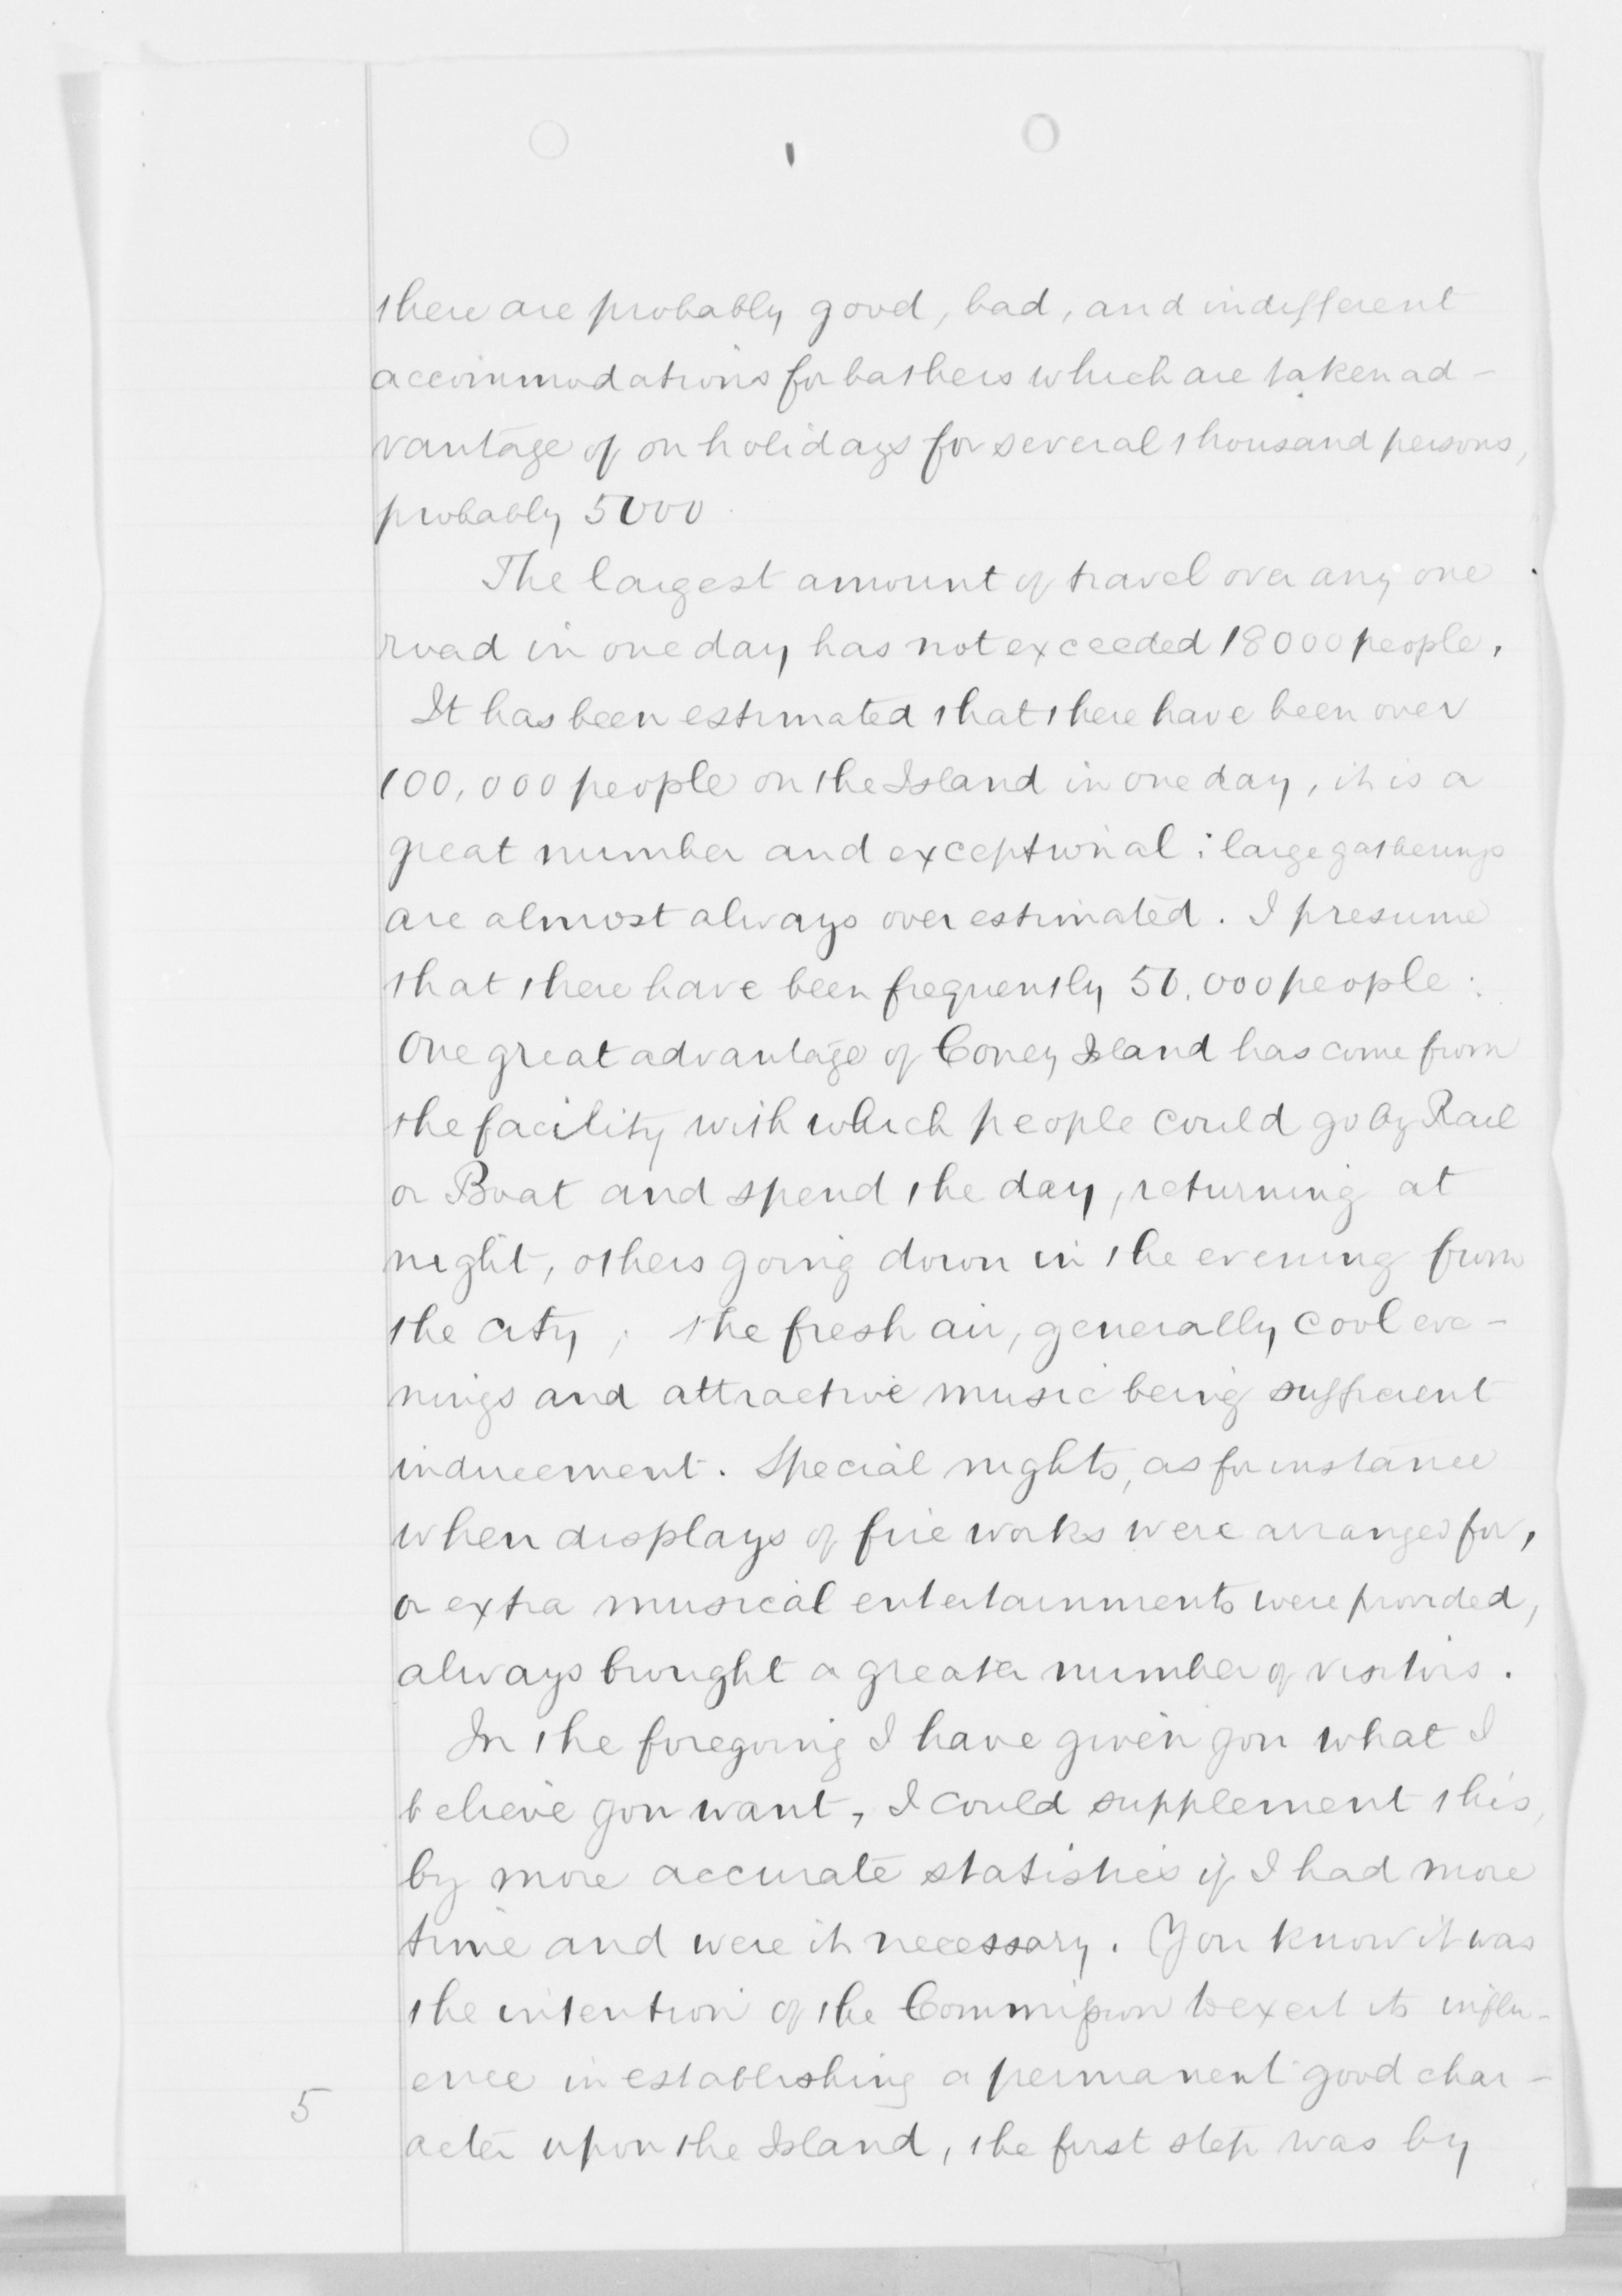 there are probably good, bad, and indifferent
accommodations for bathers which are taken ad-
vantage of on holidays for several thousand persons,
probably 5000
The largest amount of travel over any one
road in one day has not exceeded 18000 people.
It has been estimated that there have been over
100,000 people on the Island in one day, it is a
great number and exceptional; large gatherings
are almost always over estimated. I presume
that there have been frequently 50,000 people:
One great advantage of Coney Island has come from
the facility with which people could go by Rail
or Boat and spend the day, returning at
night, others going down in the evening from
the city; the fresh air, generally cool eve-
nings and attractive music being sufficient
inducement. Special nights, as for instance
when displays of fire works were arranged for,
or extra musical entertainments were provided,
always brought a greater number of visitors.
In the foregoing I have given you what I
believe you want, I could supplement this,
by more accurate statistics if I had more
time and were it necessary. You know it was
the intention of the Commission to exert its influ-
ence in establishing a permanent good char-
acter upon the Island, the first step was by
5